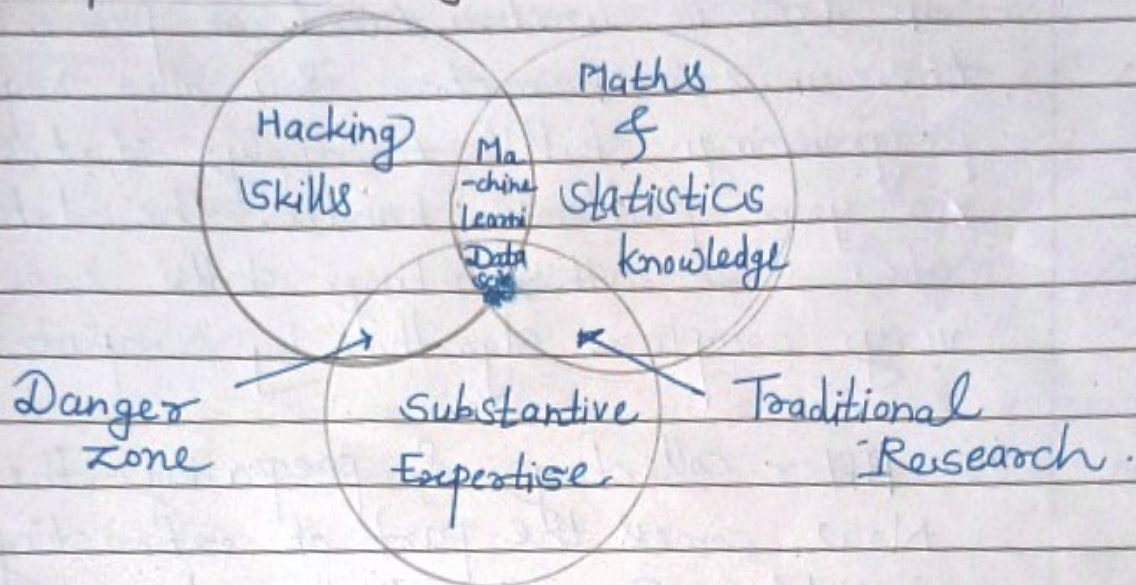 Hacking
Skills
Maths
&
Statistics
knowledge
Ma
-chine
Learni
Data
Danger
Zone
Substantive
Expertise
Traditional
Research.